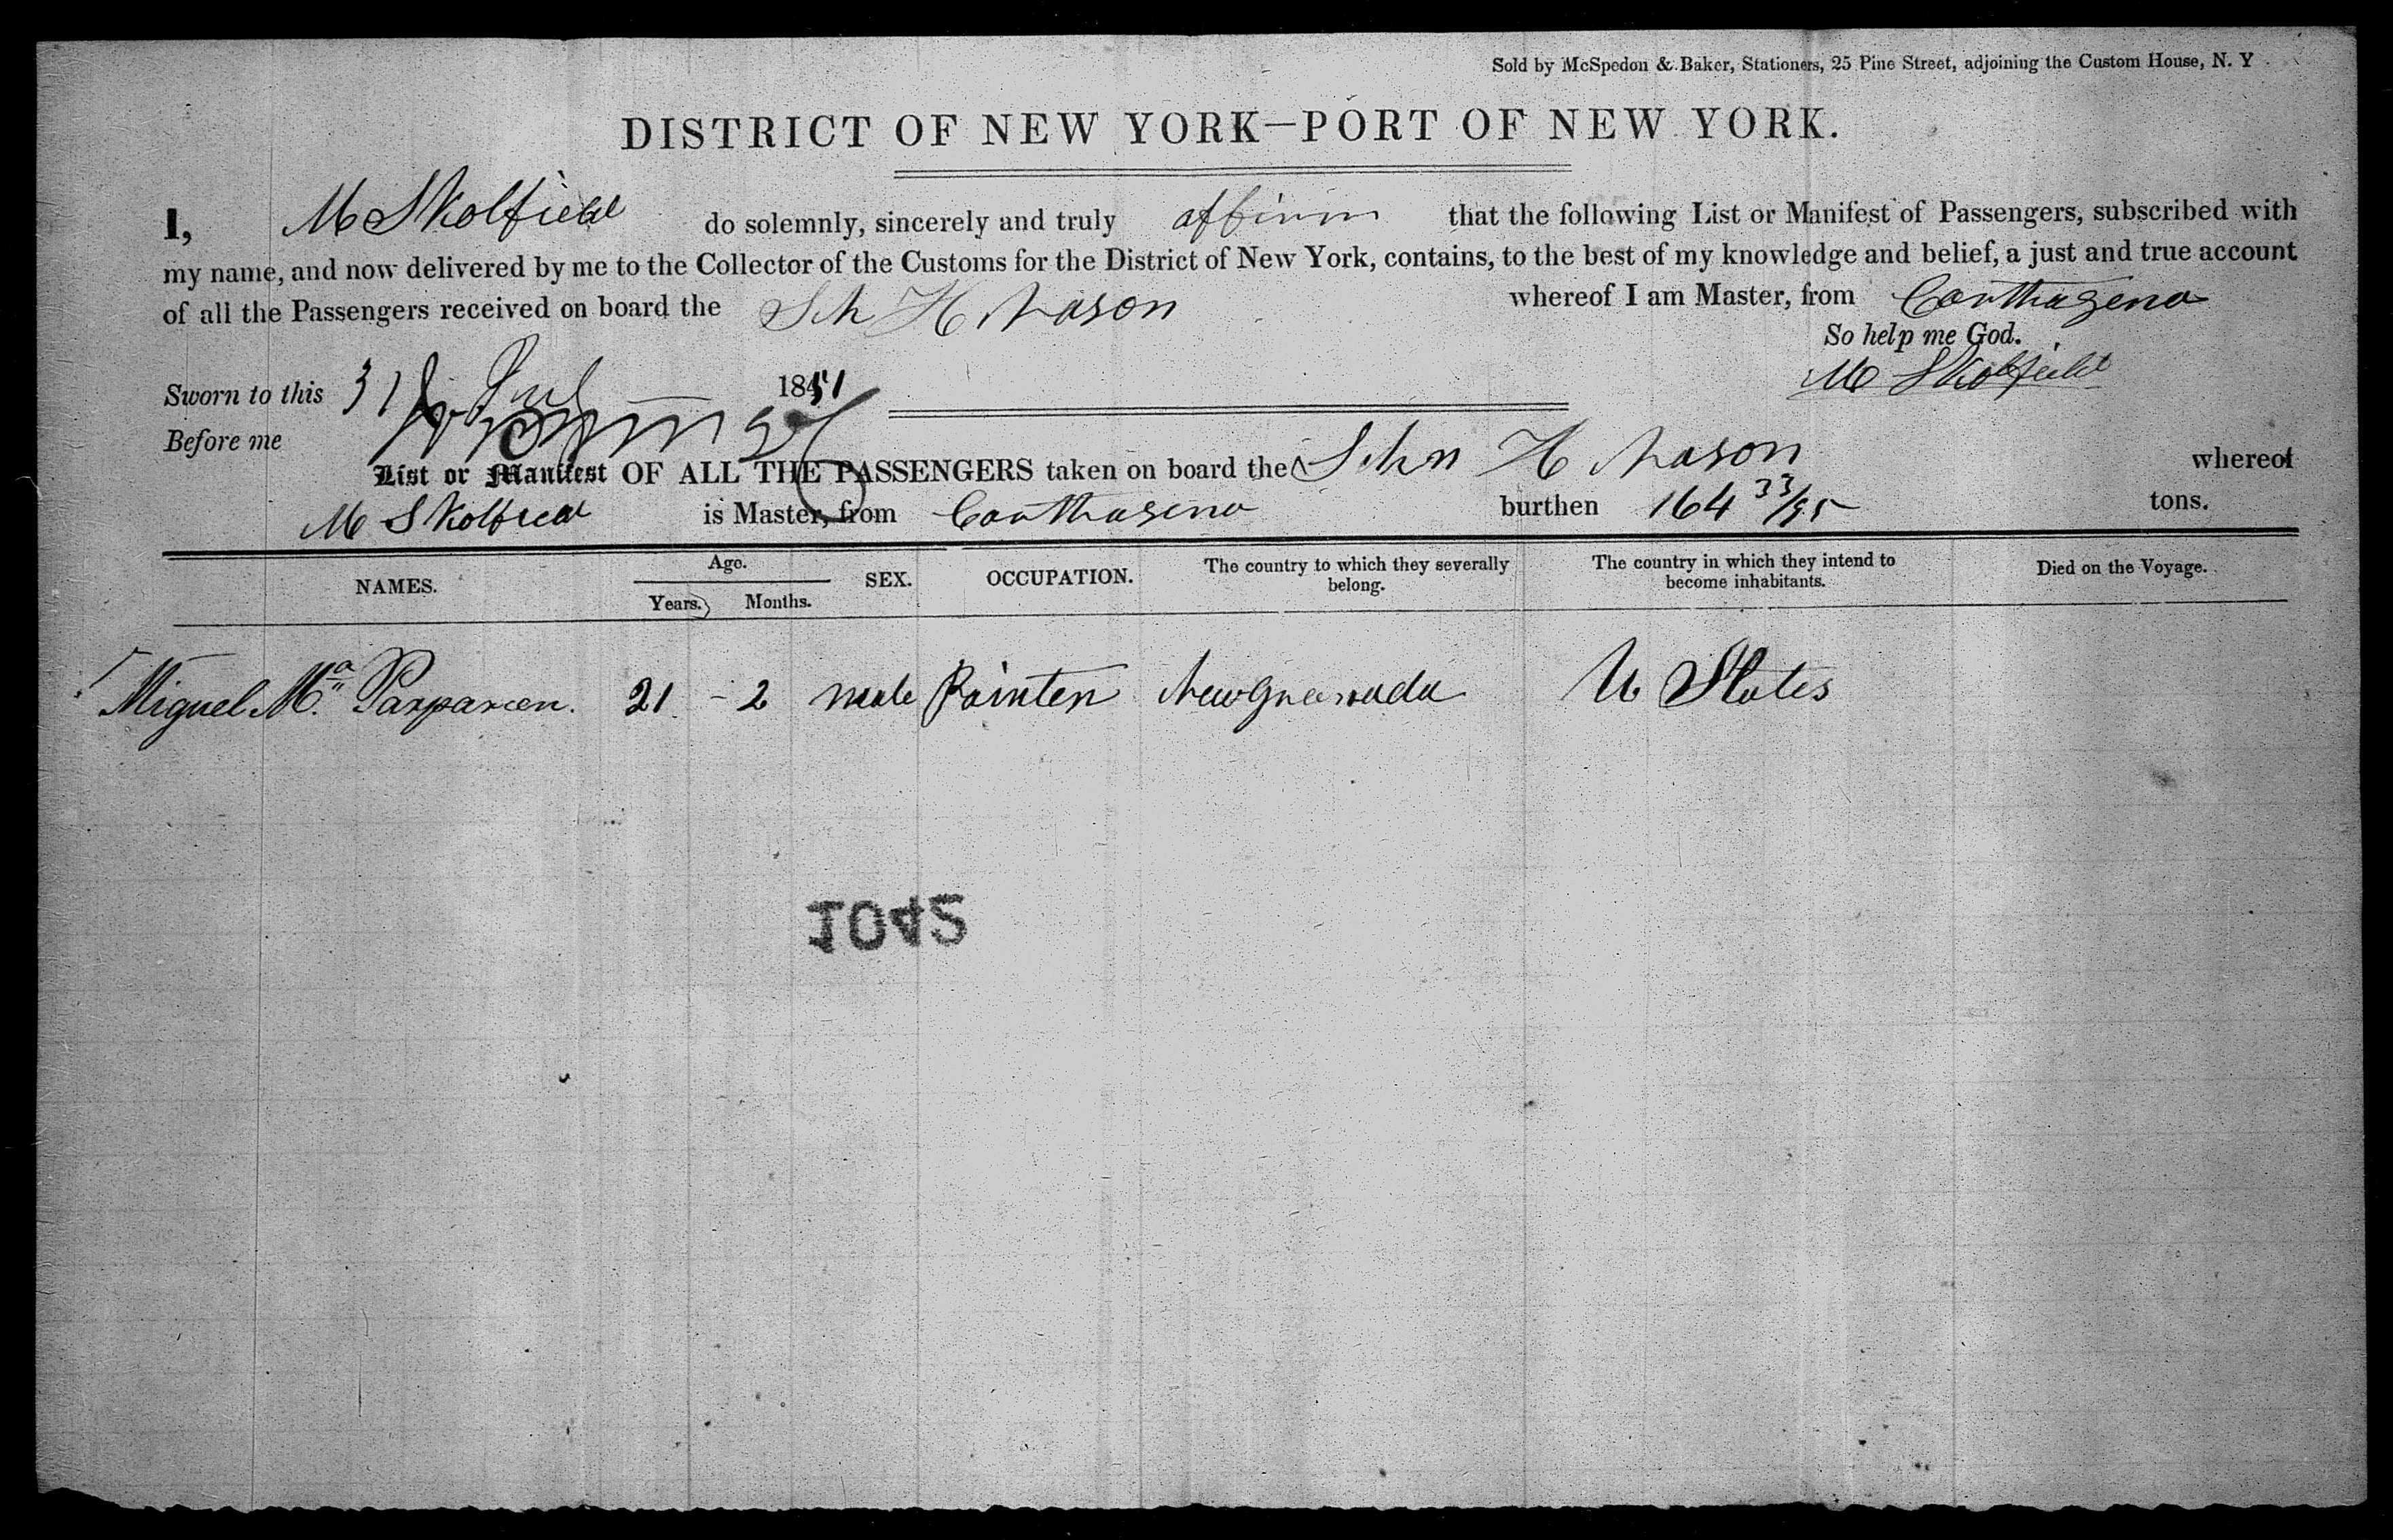 Sold by McSpedon & Baker, Stationers, 25 Pine Street, adjoining the Custom House, N. Y
DISTRICT OF NEW YORK—PORT OF NEW YORK.
I, M Skolfield do solemnly, sincerely and truly affirm that the following List or Manifest of Passengers, subscribed with
my name, and now delivered by me to the Collector of the Customs for the District of New York, contains, to the best of my knowledge and belief, a just and true account
of all the Passengers received on board the Sch H Nason whereof I am Master, from Carthagena
So help me God.
Sworn to this 31 Jul 1851 M Skolfield
Before me
List or Manifest OF ALL THE PASSENGERS taken on board the Schn H Nason whereof
M Skolfield is Master, from Carthagena burthen 164 33/95 tons.
NAMES. Age. SEX. OCCUPATION. The country to which they severally belong. The country in which they intend to become inhabitants. Died on the Voyage.
Years. Months.
Miguel Ma. 21 - 2 male Painter New Grenada U States
1045